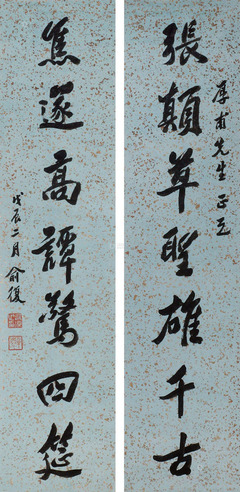 張顛草聖雄千古
厚甫先生正之
焦遂高譚驚四筵
戊辰二月 俞復